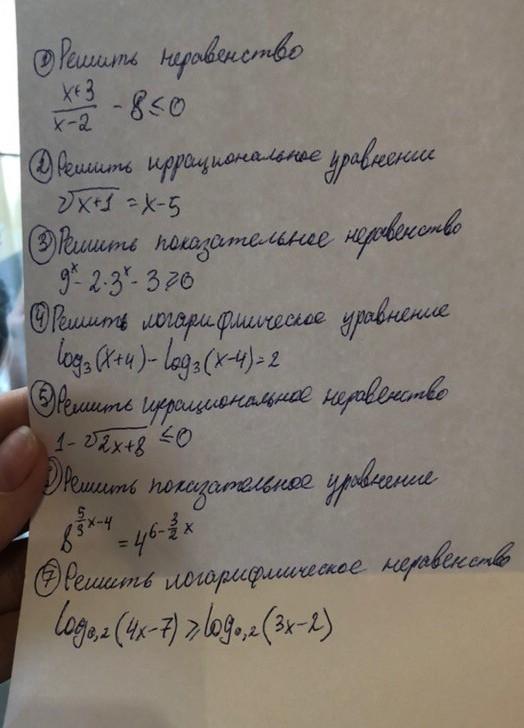 ① Решить неравенство
x+3/x-2 - 8 ≤ 0
② Решить иррациональное уравнение
√x+1 = x-5
③ Решить показательное неравенство
9^x - 2·3^x - 3 ≥ 0
④ Решить логарифмическое уравнение
log₃(x+4) - log₃(x-4) = 2
⑤ Решить иррациональное неравенство
1 - √2x+8 ≤ 0
Решить показательное уравнение
8^(5/3 x-4) = 4^(6-3/2 x)
⑦ Решить логарифмическое неравенство
log₀,₂(4x-7) ≥ log₀,₂(3x-2)